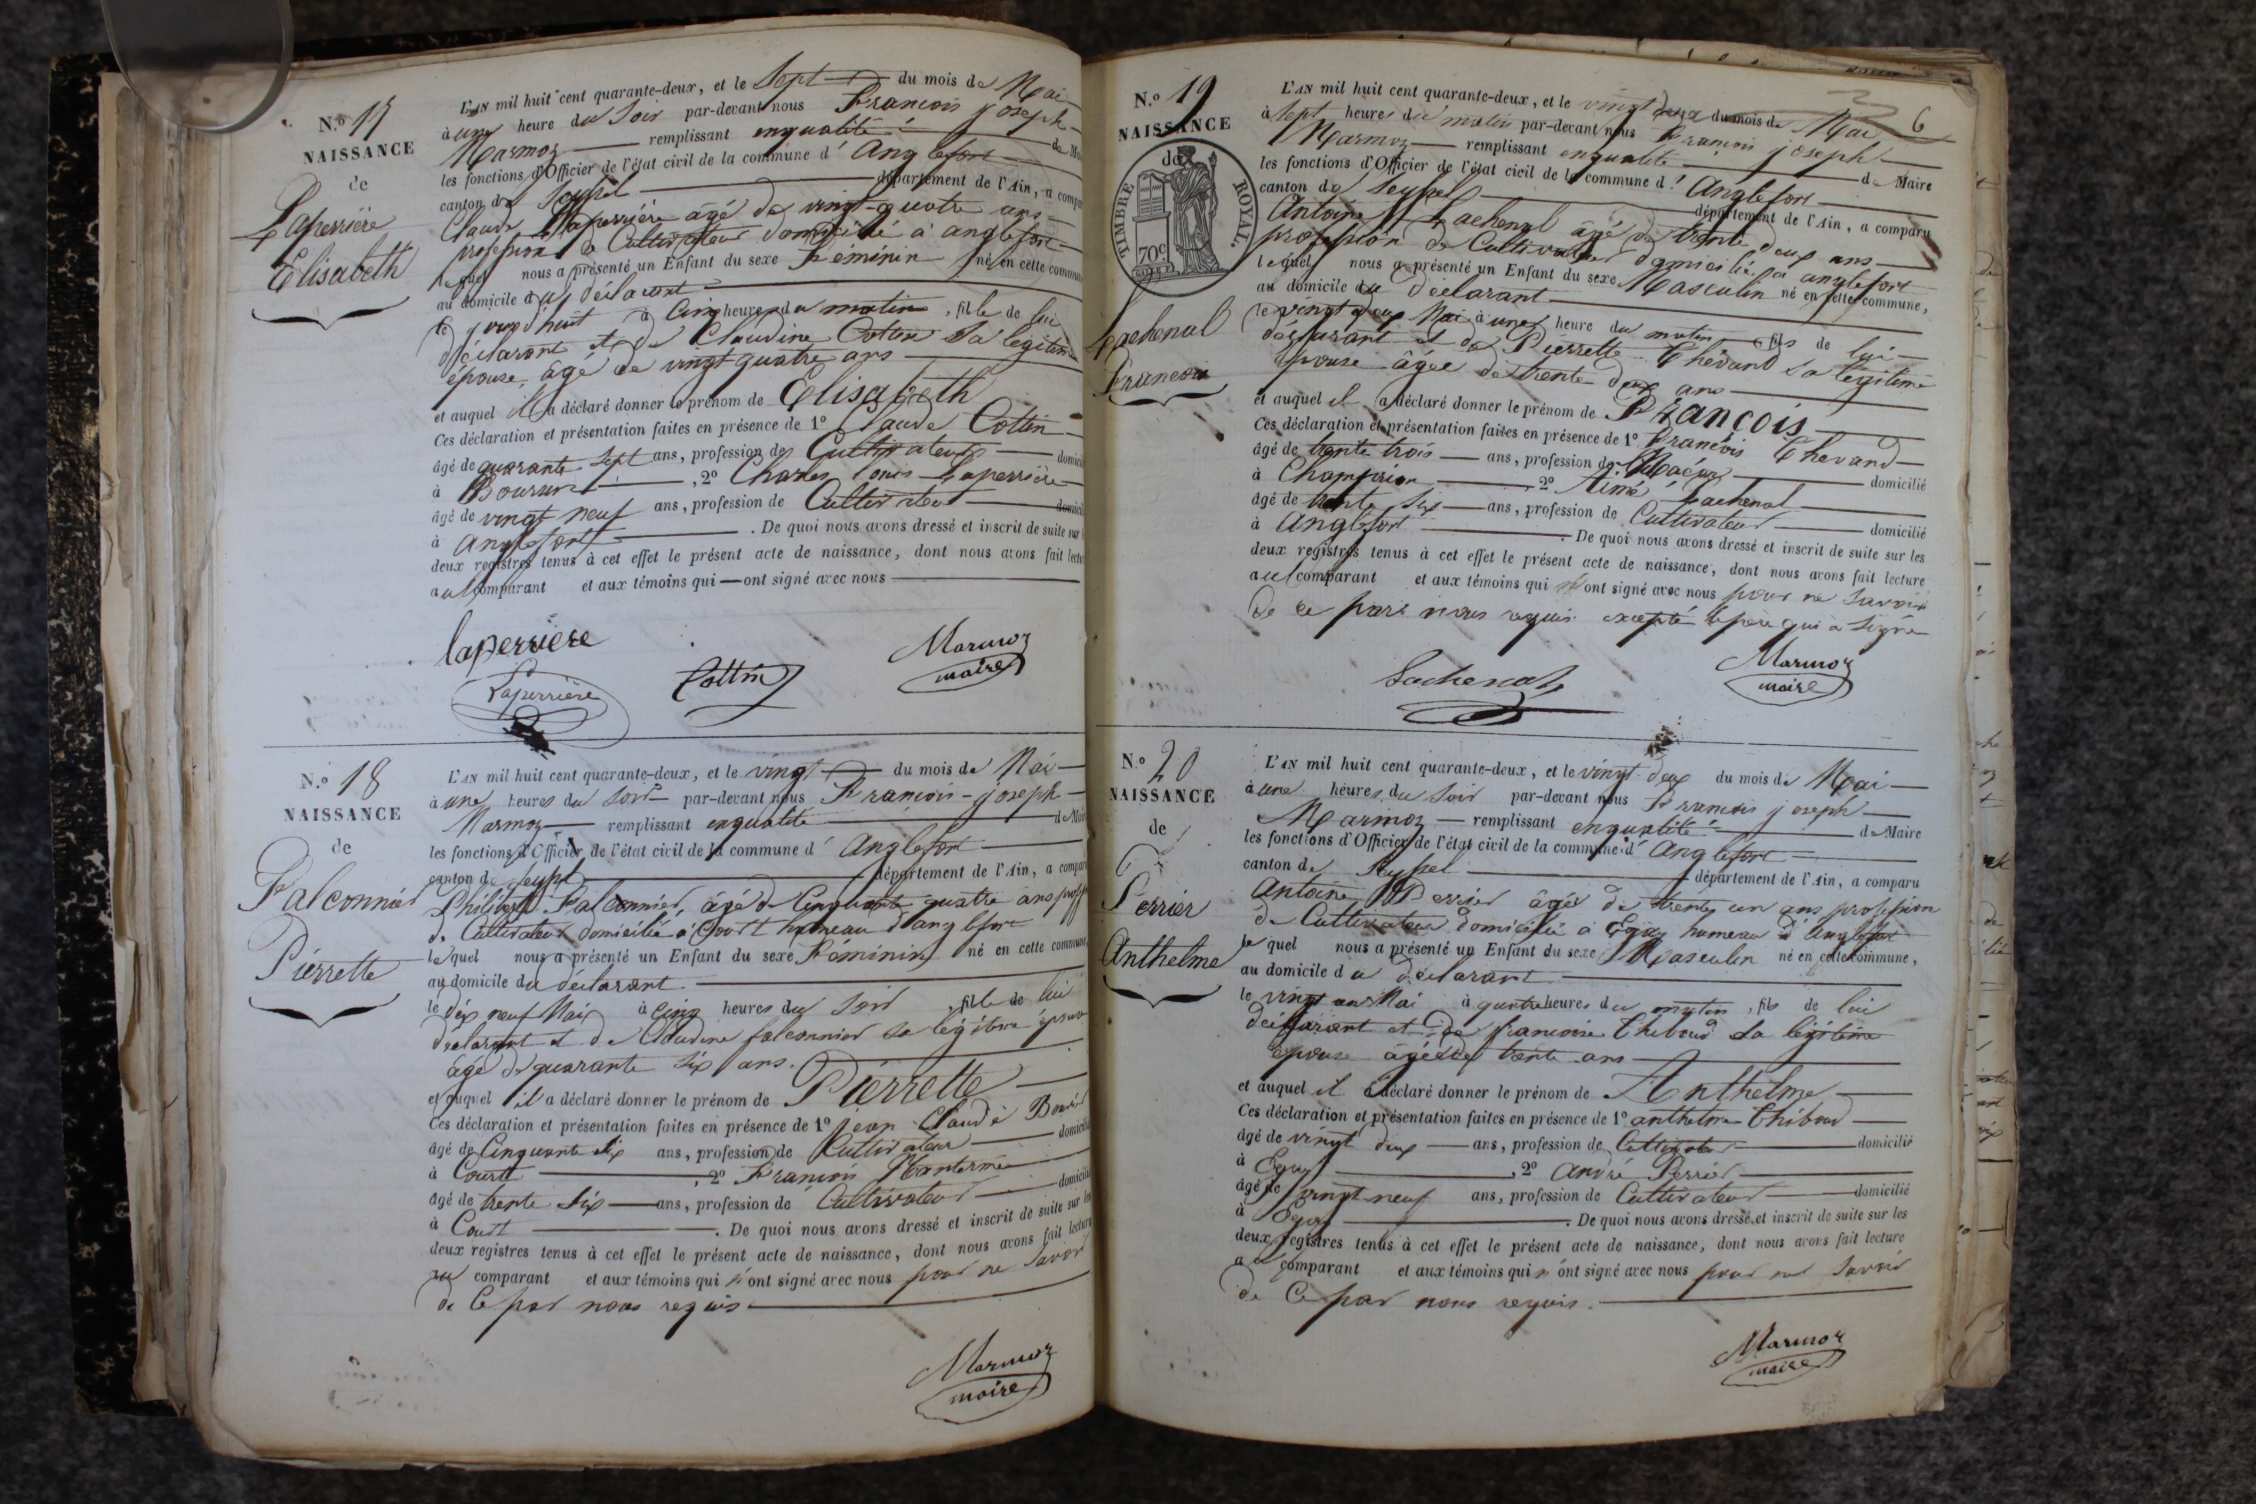 N.º 17
NAISSANCE
de
Laperrière
Elisabeth
L'AN mil huit cent quarante-deux, et le Sept du mois de Mai
à une heure du Soir par-devant nous François joseph
Marmoz remplissant enqualité de Mai
les fonctions d'Officier de l'état civil de la commune d' Anglefort
canton de Seyssel département de l'Ain, a compa
Claude Laperrière âgé de vingt-quatre ans
profession de Cultivateur domicilié à anglefort
lequel nous a présenté un Enfant du sexe Féminin né en cette commune
au domicile du déclarant
le jourd'huit à Cinq heures du matin, fille de lui
déclarant et de Claudine Cottin Sa legitime
épouse, âgé de vingt quatre ans
et auquel il a déclaré donner le prénom de Elisabeth
Ces déclaration et présentation faites en présence de 1º Claude Cottin
âgé de quarante Sept ans, profession de Cultivateur domicil
à , 2º Charles Louis Laperrière
âgé de vingt neuf ans, profession de Cultivateur domicil
à Anglefort . De quoi nous avons dressé et inscrit de suite sur
deux registres tenus à cet effet le présent acte de naissance, dont nous avons fait lectu
au comparant et aux témoins qui — ont signé avec nous
laperriere
Laperrière
Cottin
Marmoz
maire
N.º 18
NAISSANCE
de
Falconnier
Pierrette
L'AN mil huit cent quarante-deux, et le vingt du mois de Mai
à une heures du Soir par-devant nous François-joseph
Marmoz remplissant enqualité de Mai
les fonctions d'Officier de l'état civil de la commune d' Anglefort
canton de Seyssel département de l'Ain, a compar
Philibert Falconnier, âgé de Cinquante quatre ans prof
de Cultivateur domicilié à Court hameau d'anglefort
lequel nous a présenté un Enfant du sexe Féminin né en cette commune
au domicile du déclarant
le dix neuf Mai à Cinq heures du Soir, fille de lui
déclarant et de Claudine falconnier sa légitime épouse
âgé de quarante six ans.
et auquel il a déclaré donner le prénom de Pierrette
Ces déclaration et présentation faites en présence de 1º jean Claude
âgé de Cinquante six ans, profession de Cultivateur domicilié
à Court , 2º François
âgé de trente Six ans, profession de Cultivateur domicilié
à Court . De quoi nous avons dressé et inscrit de suite sur les
deux registres tenus à cet effet le présent acte de naissance, dont nous avons fait lecture
au comparant et aux témoins qui n'ont signé avec nous pour ne Savoir
de Ce par nous requis.
Marmoz
maire
6
N.º 19
NAISSANCE
de
TIMBRE ROYAL.
70c
Lachenal
François
L'AN mil huit cent quarante-deux, et le vingt deux du mois de Mai
à Sept heures du matin par-devant nous François joseph
Marmoz remplissant enqualité de Maire
les fonctions d'Officier de l'état civil de la commune d' Anglefort
canton de Seyssel département de l'Ain, a comparu
Antoine Lachenal âgé de trente deux ans
profession de Cultivateur domicilié à anglefort
lequel nous a présenté un Enfant du sexe Masculin né en cette commune,
au domicile du déclarant
le vingt deux Mai à une heure du matin, fils de lui
déclarant et de Pierrette Chevand sa légitime
épouse âgée de trente deux ans
et auquel il a déclaré donner le prénom de François
Ces déclaration et présentation faites en présence de 1º François Chevand
âgé de trente trois ans, profession de Maçon domicilié
à , 2º Aimé Lachenal
âgé de trente Six ans, profession de Cultivateur domicilié
à Anglefort . De quoi nous avons dressé et inscrit de suite sur les
deux registres tenus à cet effet le présent acte de naissance, dont nous avons fait lecture
au comparant et aux témoins qui n'ont signé avec nous pour ne Savoir
de ce par nous requis excepté le père qui a Signé
Lachenal
Marmoz
maire
N.º 20
NAISSANCE
de
Perrier
Anthelme
L'AN mil huit cent quarante-deux, et le vingt deux du mois de Mai
à une heures du Soir par-devant nous François joseph
Marmoz remplissant enqualité de Maire
les fonctions d'Officier de l'état civil de la commune d' Anglefort
canton de Seyssel département de l'Ain, a comparu
Antoine Perrier âgé de trente un ans profession
de Cultivateur domicilié à hameau d'anglefort
lequel nous a présenté un Enfant du sexe Masculin né en cette commune,
au domicile du déclarant
le vingt un Mai à quatre heures du matin, fils de lui
déclarant et de françoise Thiboud Sa légitime
épouse âgée de trente ans
et auquel il a déclaré donner le prénom de Anthelme
Ces déclaration et présentation faites en présence de 1º anthelme Thiboud
âgé de vingt deux ans, profession de Cultivateur domicilié
à , 2º André Perrier
âgé de vingt neuf ans, profession de Cultivateur domicilié
à . De quoi nous avons dressé et inscrit de suite sur les
deux registres tenus à cet effet le présent acte de naissance, dont nous avons fait lecture
au comparant et aux témoins qui n'ont signé avec nous pour ne Savoir
de Ce par nous requis.
Marmoz
maire